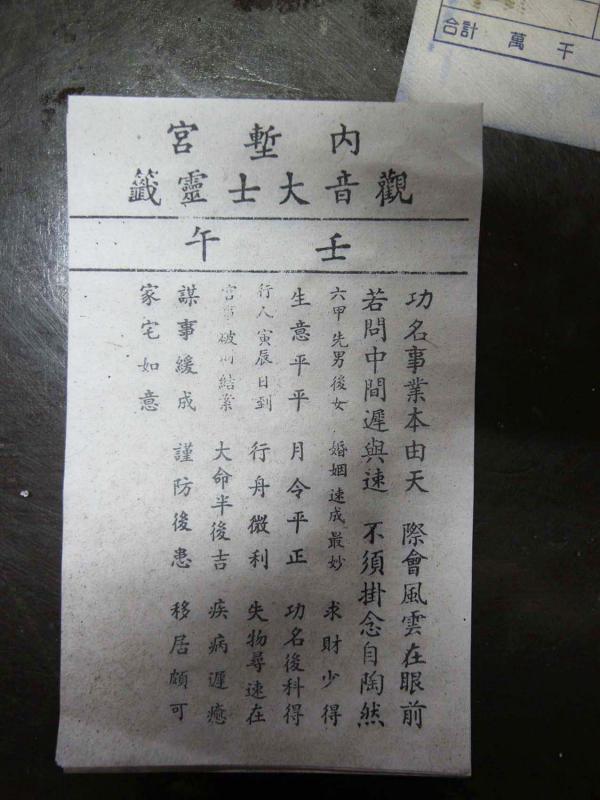 內塹宮
觀音大士靈籤
壬午
功名事業本由天 際會風雲在眼前
若問中間遲與速 不須掛念自陶然
六甲先男後女 婚姻速成最妙 求財少得
生意平平 月令平正 功名後科得
行人寅辰日到 行舟微利 失物尋速在
官事破財結案 大命半後吉 疾病遲癒
謀事緩成 謹防後患 移居頗可
家宅如意
合計 萬 千